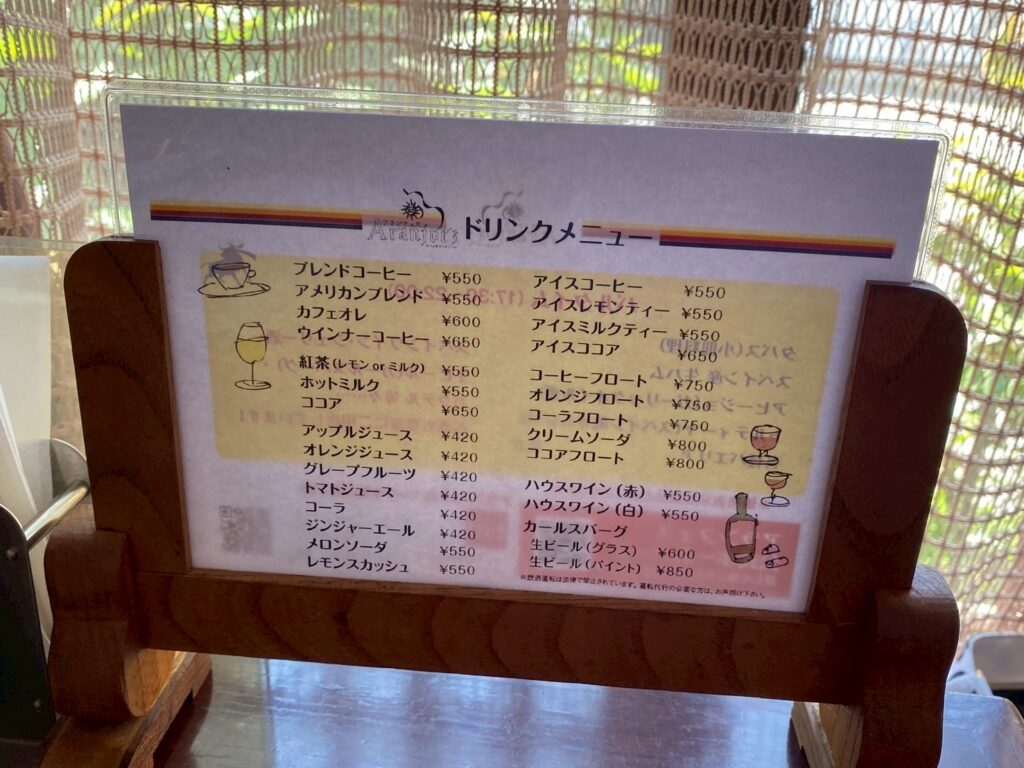 Aranjuez
ドリンクメニュー
ブレンドコーヒー ¥550
アメリカンブレンド ¥550
カフェオレ ¥600
ウインナーコーヒー ¥650
紅茶(レモン or ミルク) ¥550
ホットミルク ¥550
ココア ¥650
アップルジュース ¥420
オレンジジュース ¥420
グレープフルーツ ¥420
トマトジュース ¥420
コーラ ¥420
ジンジャーエール ¥420
メロンソーダ ¥550
レモンスカッシュ ¥550
アイスコーヒー ¥550
アイスレモンティー ¥550
アイスミルクティー ¥550
アイスココア ¥650
コーヒーフロート ¥750
オレンジフロート ¥750
コーラフロート ¥750
クリームソーダ ¥800
ココアフロート ¥800
ハウスワイン(赤) ¥550
ハウスワイン(白) ¥550
カールスバーグ
生ビール(グラス) ¥600
生ビール(パイント) ¥850
※飲酒運転は法律で禁止されています。運転代行の必要な方は、お声掛け下さい。